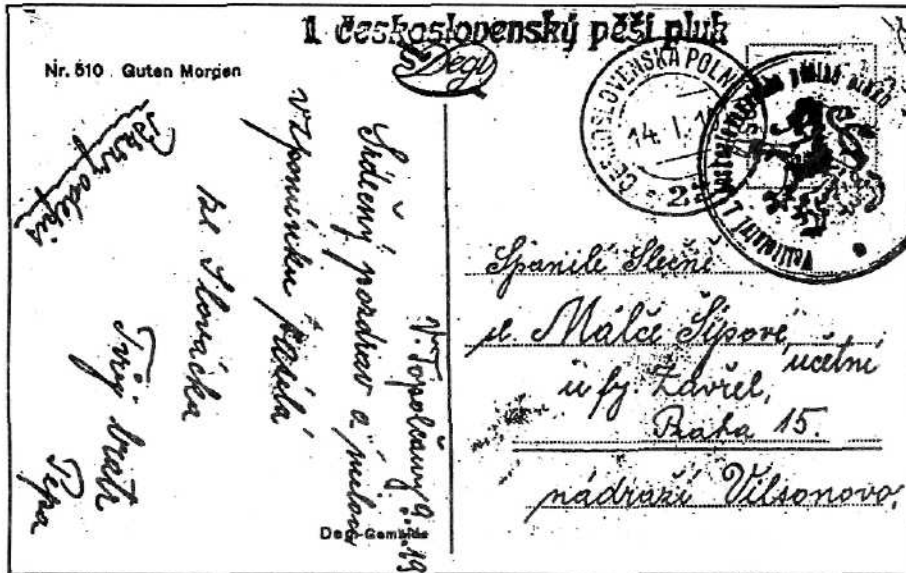 1. československý pěší pluk
Nr. 510 Guten Morgen
Degi
ČESKOSLOVENSKÁ POLNÍ
14. I. 19
2
V. Topolčany 9. I. 19
Srdečný pozdrav a milou
vzpomínku
ze Slovácka
Tvůj bratr
Pepa
Spanilé Slečně
sl. Málče Šípové,
účetní
u fy. Zavřel,
Praha 15.
nádraží Vilsonovo,